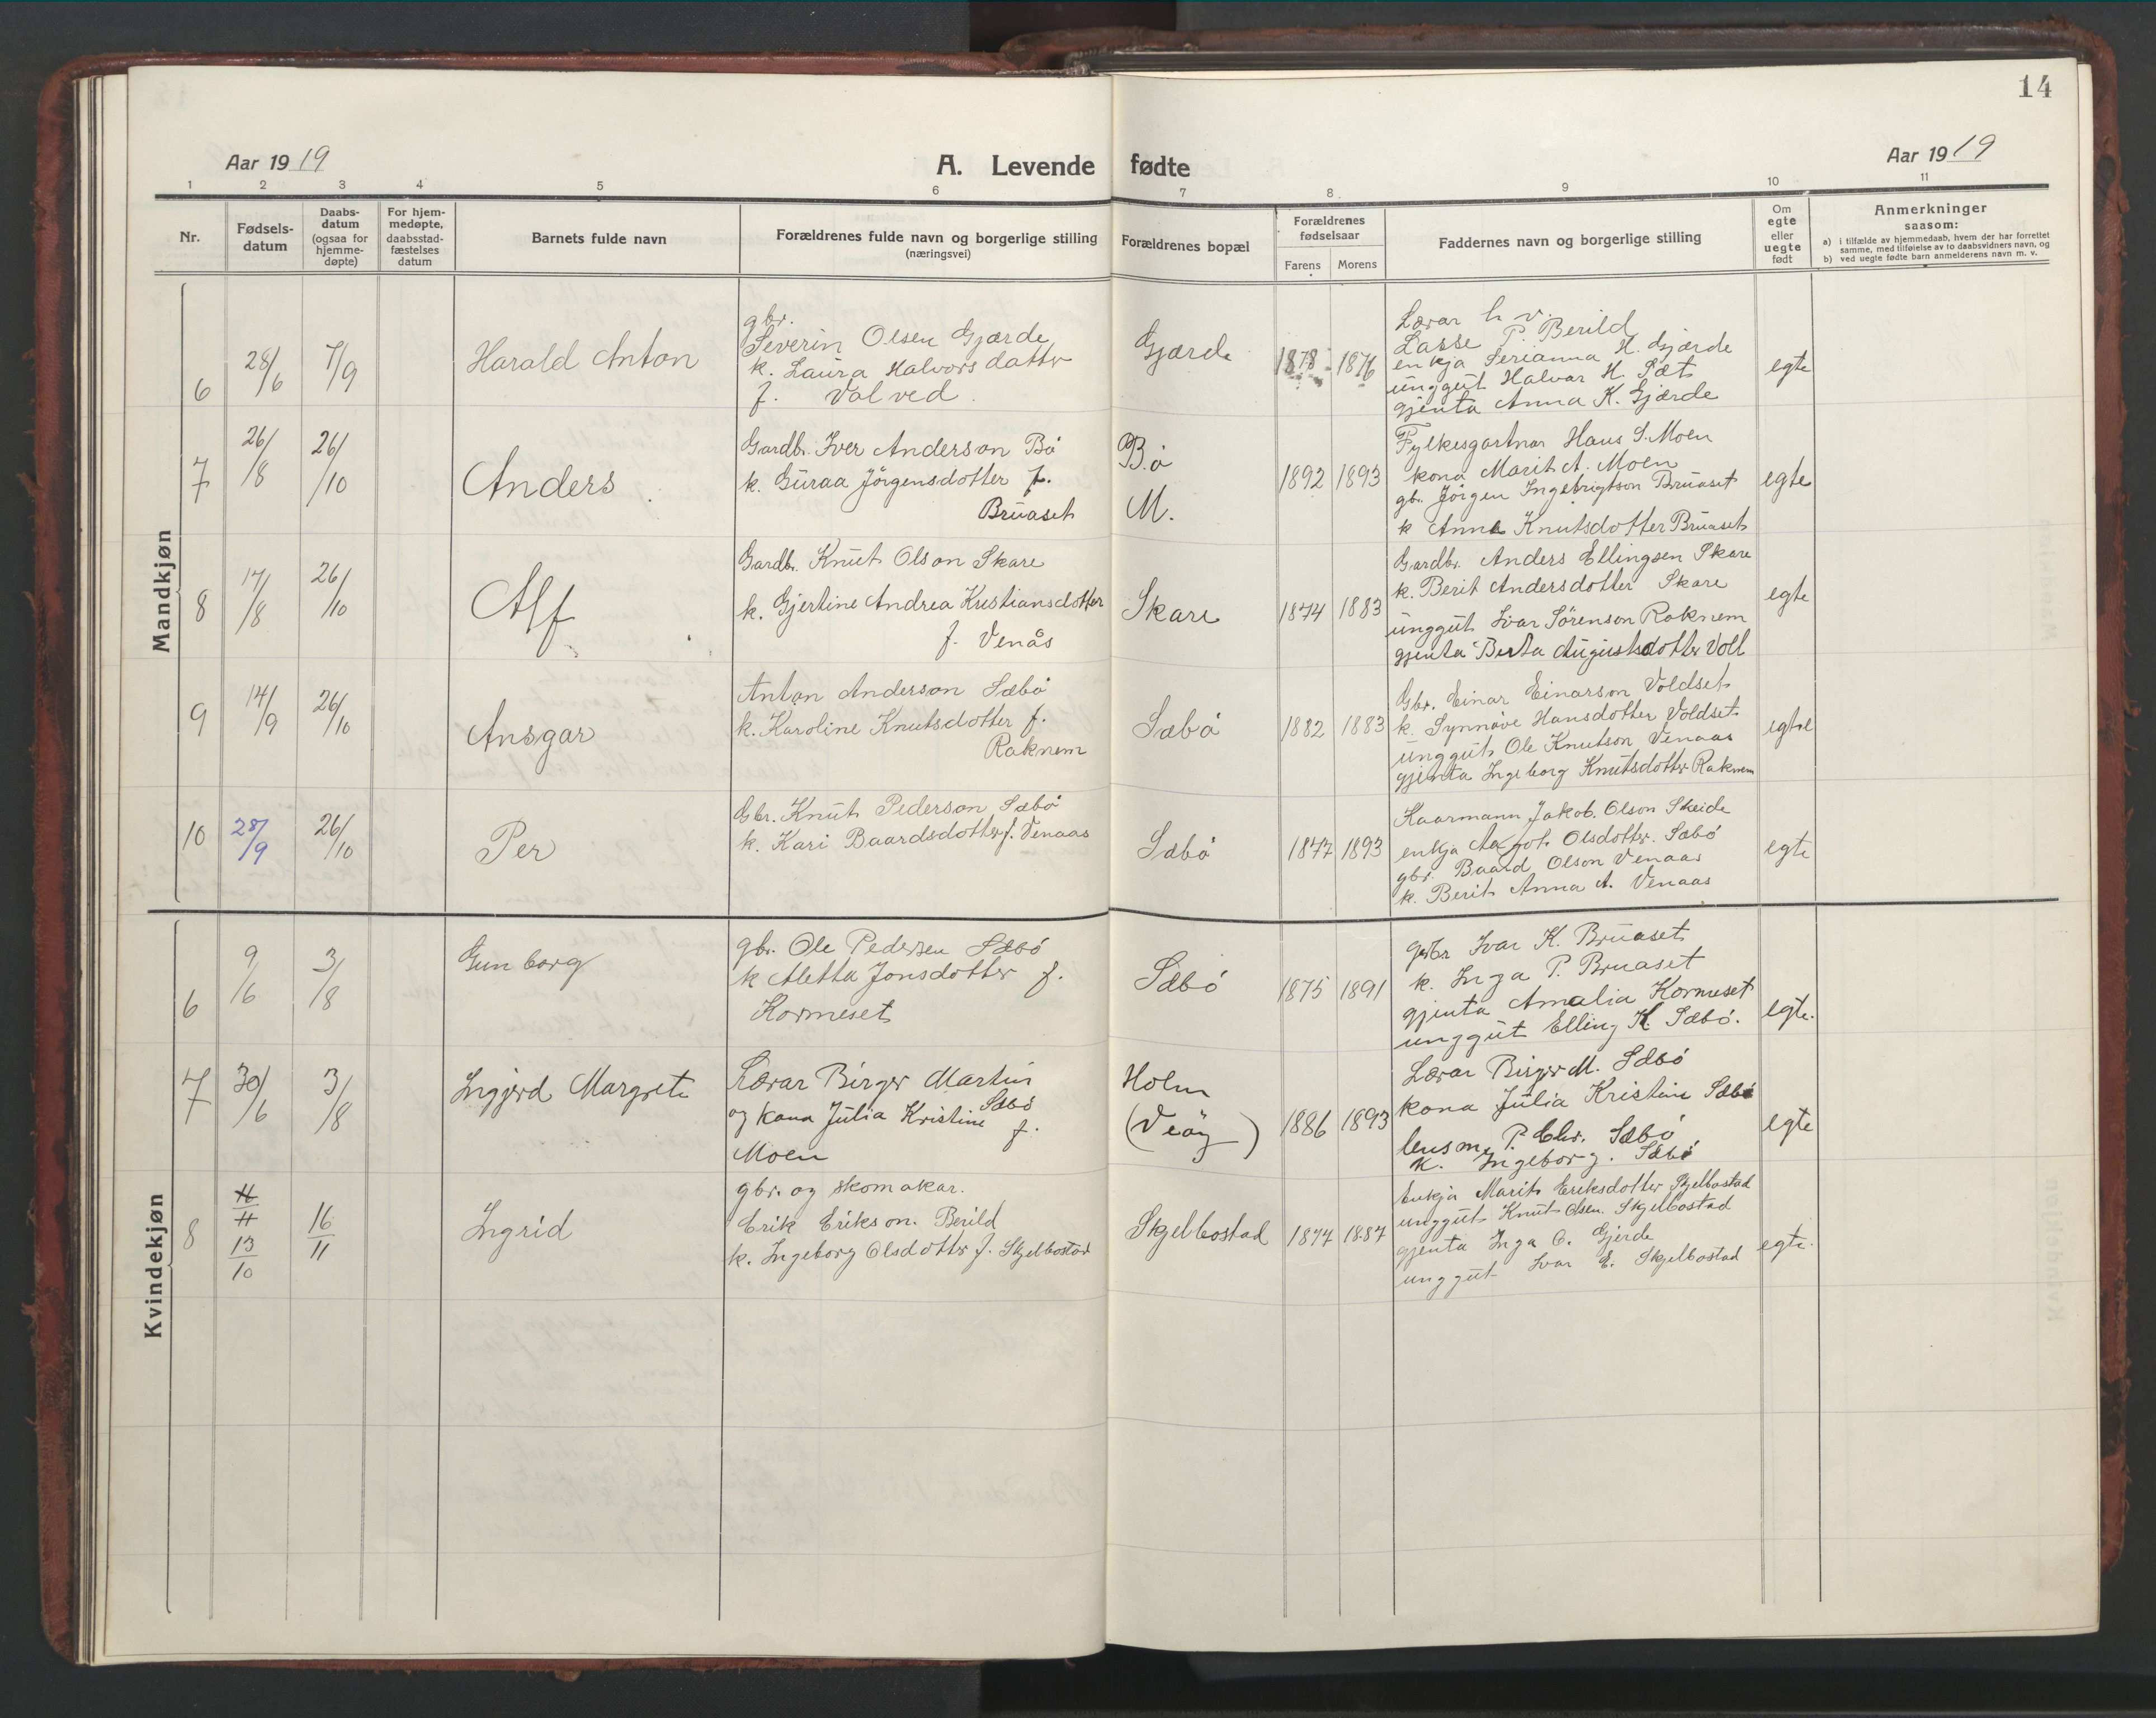 14
Aar 1919
A. Levende fødte
Aar 1919
1 2 3 4 5 6 7 8 9 10 11
Nr.
Fødsels-
datum
Daabs-
datum
(ogsaa for
hjemme-
døpte)
For hjem-
medøpte,
daabsstad-
fæstelses
datum
Barnets fulde navn
Forældrenes fulde navn og borgerlige stilling
(næringsvei)
Forældrenes bopæl
Forældrenes
fødselsaar
Farens Morens
Faddernes navn og borgerlige stilling
Om
egte
eller
uegte
født
Anmerkninger
saasom:
a) i tilfælde av hjemmedaab, hvem der har forrettet
samme, med tilføielse av to daabsvidners navn, og
b) ved uegte fødte barn anmelderens navn m. v.
Mandkjøn
6
28/6
7/9
Harald Anton
gbr.
Severin Olsen Gjærde
k. Laura Halvorsdatter
f. Valved.
Gjærde
1878
1876
Lærar
Lasse P. Berild
enkja Serianna H. Gjærde
unggut Halvar H. Sæt
gjenta Anna K. Gjærde
egte
7
26/8
26/10
Anders
Gardbr. Iver Anderson Bö
k. Guraa Jörgensdotter f.
Bruaset
Bö
M.
1892
1893
Fylkesgartnar Hans S. Moen
kona Marit A. Moen
gbr. Jörgen Ingebrigtson Bruaset
k Anna Knutsdotter Bruaset
egte
8
17/8
26/10
Alf
Gardbr. Knut Olson Skare
k. Gjertine Andrea Kristiansdotter
f. Venås
Skare
1874
1883
Gardbr. Anders Ellingsen Skare
k. Berit Andersdotter Skare
unggut Ivar Sörenson Raknem
gjenta Berta Augustsdotter Voll
egte
9
14/9
26/10
Ansgar
Anton Anderson Sæbö
k. Karoline Knutsdotter f.
Raknem
Sæbö
1882
1883
Gbr. Einar Einarson Voldset
k. Synnöve Hansdotter Voldset
unggut Ole Knutson Venaas
gjenta Ingeborg Knutsdotter Raknem
egte
10
28/9
26/10
Per
Gbr. Knut Pederson Sæbö
k. Kari Baardsdotter f. Venaas
Sæbö
1877
1893
Kaarmann Jakob Olson Skeide
enkja Aagot Olsdotter Sæbö
gbr. Baard Olson Venaas
k. Berit Anna A. Venaas
egte
Kvindekjøn
6
9/6
3/8
Gunborg
gbr. Ole Pedersen Sæbö
k Aletta Jonsdotter f.
Kormeset
Sæbö
1875
1891
gbr Ivar K. Bruaset
k. Inga P. Bruaset
gjenta Amalia Kormeset
unggut Elling K. Sæbö.
egte.
7
30/6
3/8
Ingjerd Margrete
Lærar Birger Martin
Sæbö
og kona Julia Kristine f.
Moen
Holm
(Veöy)
1886
1893
Lærar Birger M. Sæbö
kona Julia Kristine Sæbö
lensm. P. Chr. Sæbö
k. Ingeborg. Sæbö
egte
8
11/11
13/10
16/11
Ingrid
gbr. og skomakar.
Erik Erikson. Berild
k. Ingeborg Olsdotter f. Skjelbostad
Skjelbostad
1877
1887
Enkja Marit Eriksdotter Skjelbostad
unggut Knut Olsen Skjelbostad
gjenta Inga O. Gjerde
unggut Ivar E. Skjelbostad
egte.